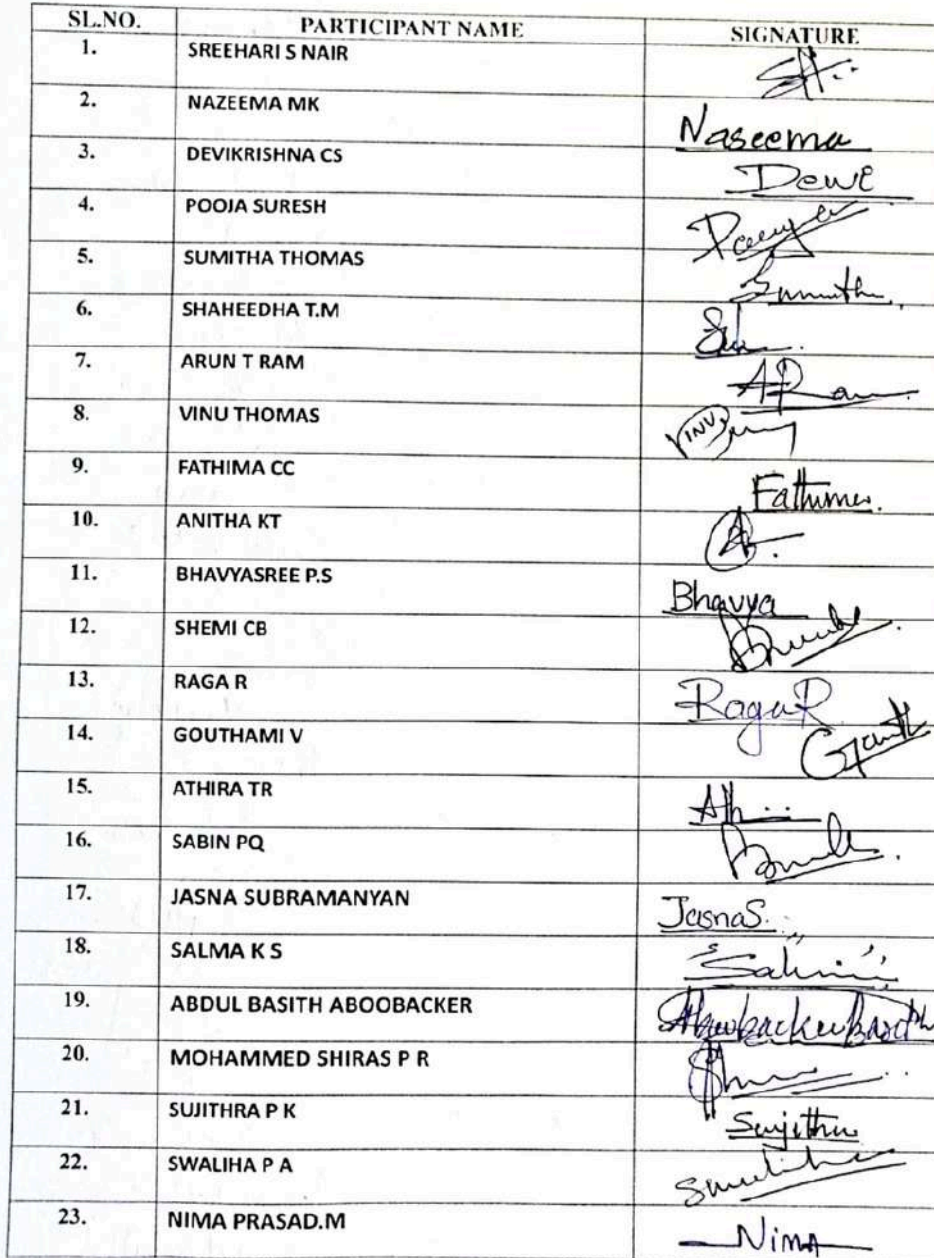 SL.NO. PARTICIPANT NAME SIGNATURE
1. SREEHARI S NAIR
2. NAZEEMA MK Naseema
3. DEVIKRISHNA CS Dewi
4. POOJA SURESH
5. SUMITHA THOMAS Sumitha
6. SHAHEEDHA T.M
7. ARUN T RAM ARam
8. VINU THOMAS VINU
9. FATHIMA CC Fathima
10. ANITHA KT
11. BHAVYASREE P.S Bhavya
12. SHEMI CB
13. RAGA R Raga R
14. GOUTHAMI V
15. ATHIRA TR
16. SABIN PQ
17. JASNA SUBRAMANYAN Jasna S.
18. SALMA K S
19. ABDUL BASITH ABOOBACKER
20. MOHAMMED SHIRAS P R
21. SUJITHRA P K Sujithra
22. SWALIHA P A
23. NIMA PRASAD.M Nima